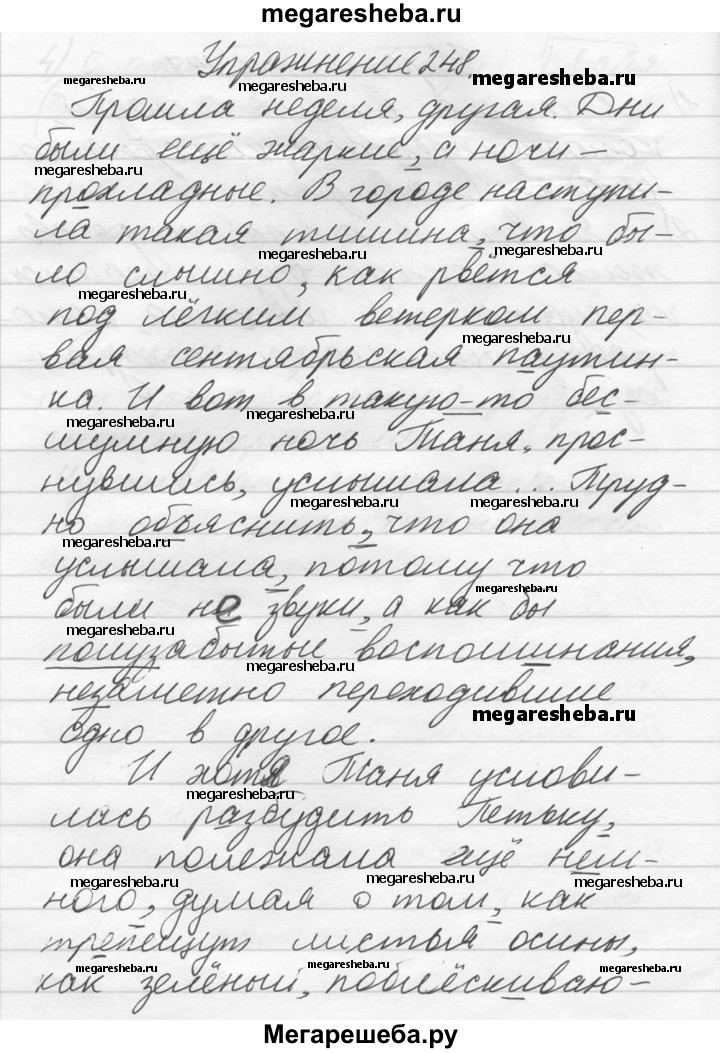 megaresheba.ru
Упражнение 248.
megaresheba.ru
megaresheba.ru
Прошла неделя, другая. Дни
были ещё жаркие, а ночи –
megaresheba.ru
прохладные. В городе наступи-
ла такая тишина, что бы-
megaresheba.ru
megaresheba.ru
ло слышно, как рвётся
megaresheba.ru
под лёгким ветерком пер-
megaresheba.ru
вая сентябрьская паутин-
ка. И вот в такую-то бес-
megaresheba.ru
megaresheba.ru
шумную ночь Таня, прос-
нувшись, услышала... Труд-
megaresheba.ru
megaresheba.ru
но объяснить, что она
megaresheba.ru
услышала, потому что
megaresheba.ru
были не звуки, а как бы
megaresheba.ru
полузабытые воспоминания,
megaresheba.ru
незаметно переходившие
megaresheba.ru
одно в другое.
И хотя Таня услови-
megaresheba.ru
лась разбудить Петьку,
она полежала ещё нем-
megaresheba.ru
megaresheba.ru
ного, думая о том, как
трепещут листья осины,
megaresheba.ru
megaresheba.ru
megaresheba.ru
как зелёный, поблёскиваю-
Мегарешеба.ру